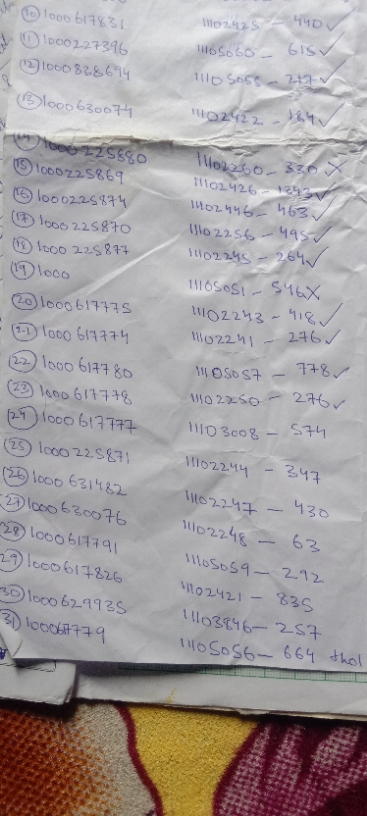 10 1000617831 11102425 - 440 ✓
11 1000227396 11105060 - 615 ✓
12 1000838694 11105055 - 277 ✓
13 1000630074 11102422 - 184 ✓
14 1000225880 11102260 - 330 ✗
15 1000225869 11102426 - 1343 ✓
16 1000225874 11102446 - 463 ✓
17 1000225870 11102256 - 495 ✓
18 1000225877 11102245 - 264 ✓
19 1000 11105051 - 546 ✗
20 1000617775 11102243 - 418 ✓
21 1000617774 11102241 - 276 ✓
22 1000617780 11105057 - 778 ✓
23 1000617778 11102250 - 276 ✓
24 1000617777 11103008 - 574
25 1000225871 11102244 - 347
26 1000631482 11102247 - 430
27 1000630076 11102248 - 63
28 1000617791 11105059 - 292
29 1000617826 11102421 - 835
30 1000629935 11103846 - 257
31 100067779 11105056 - 664